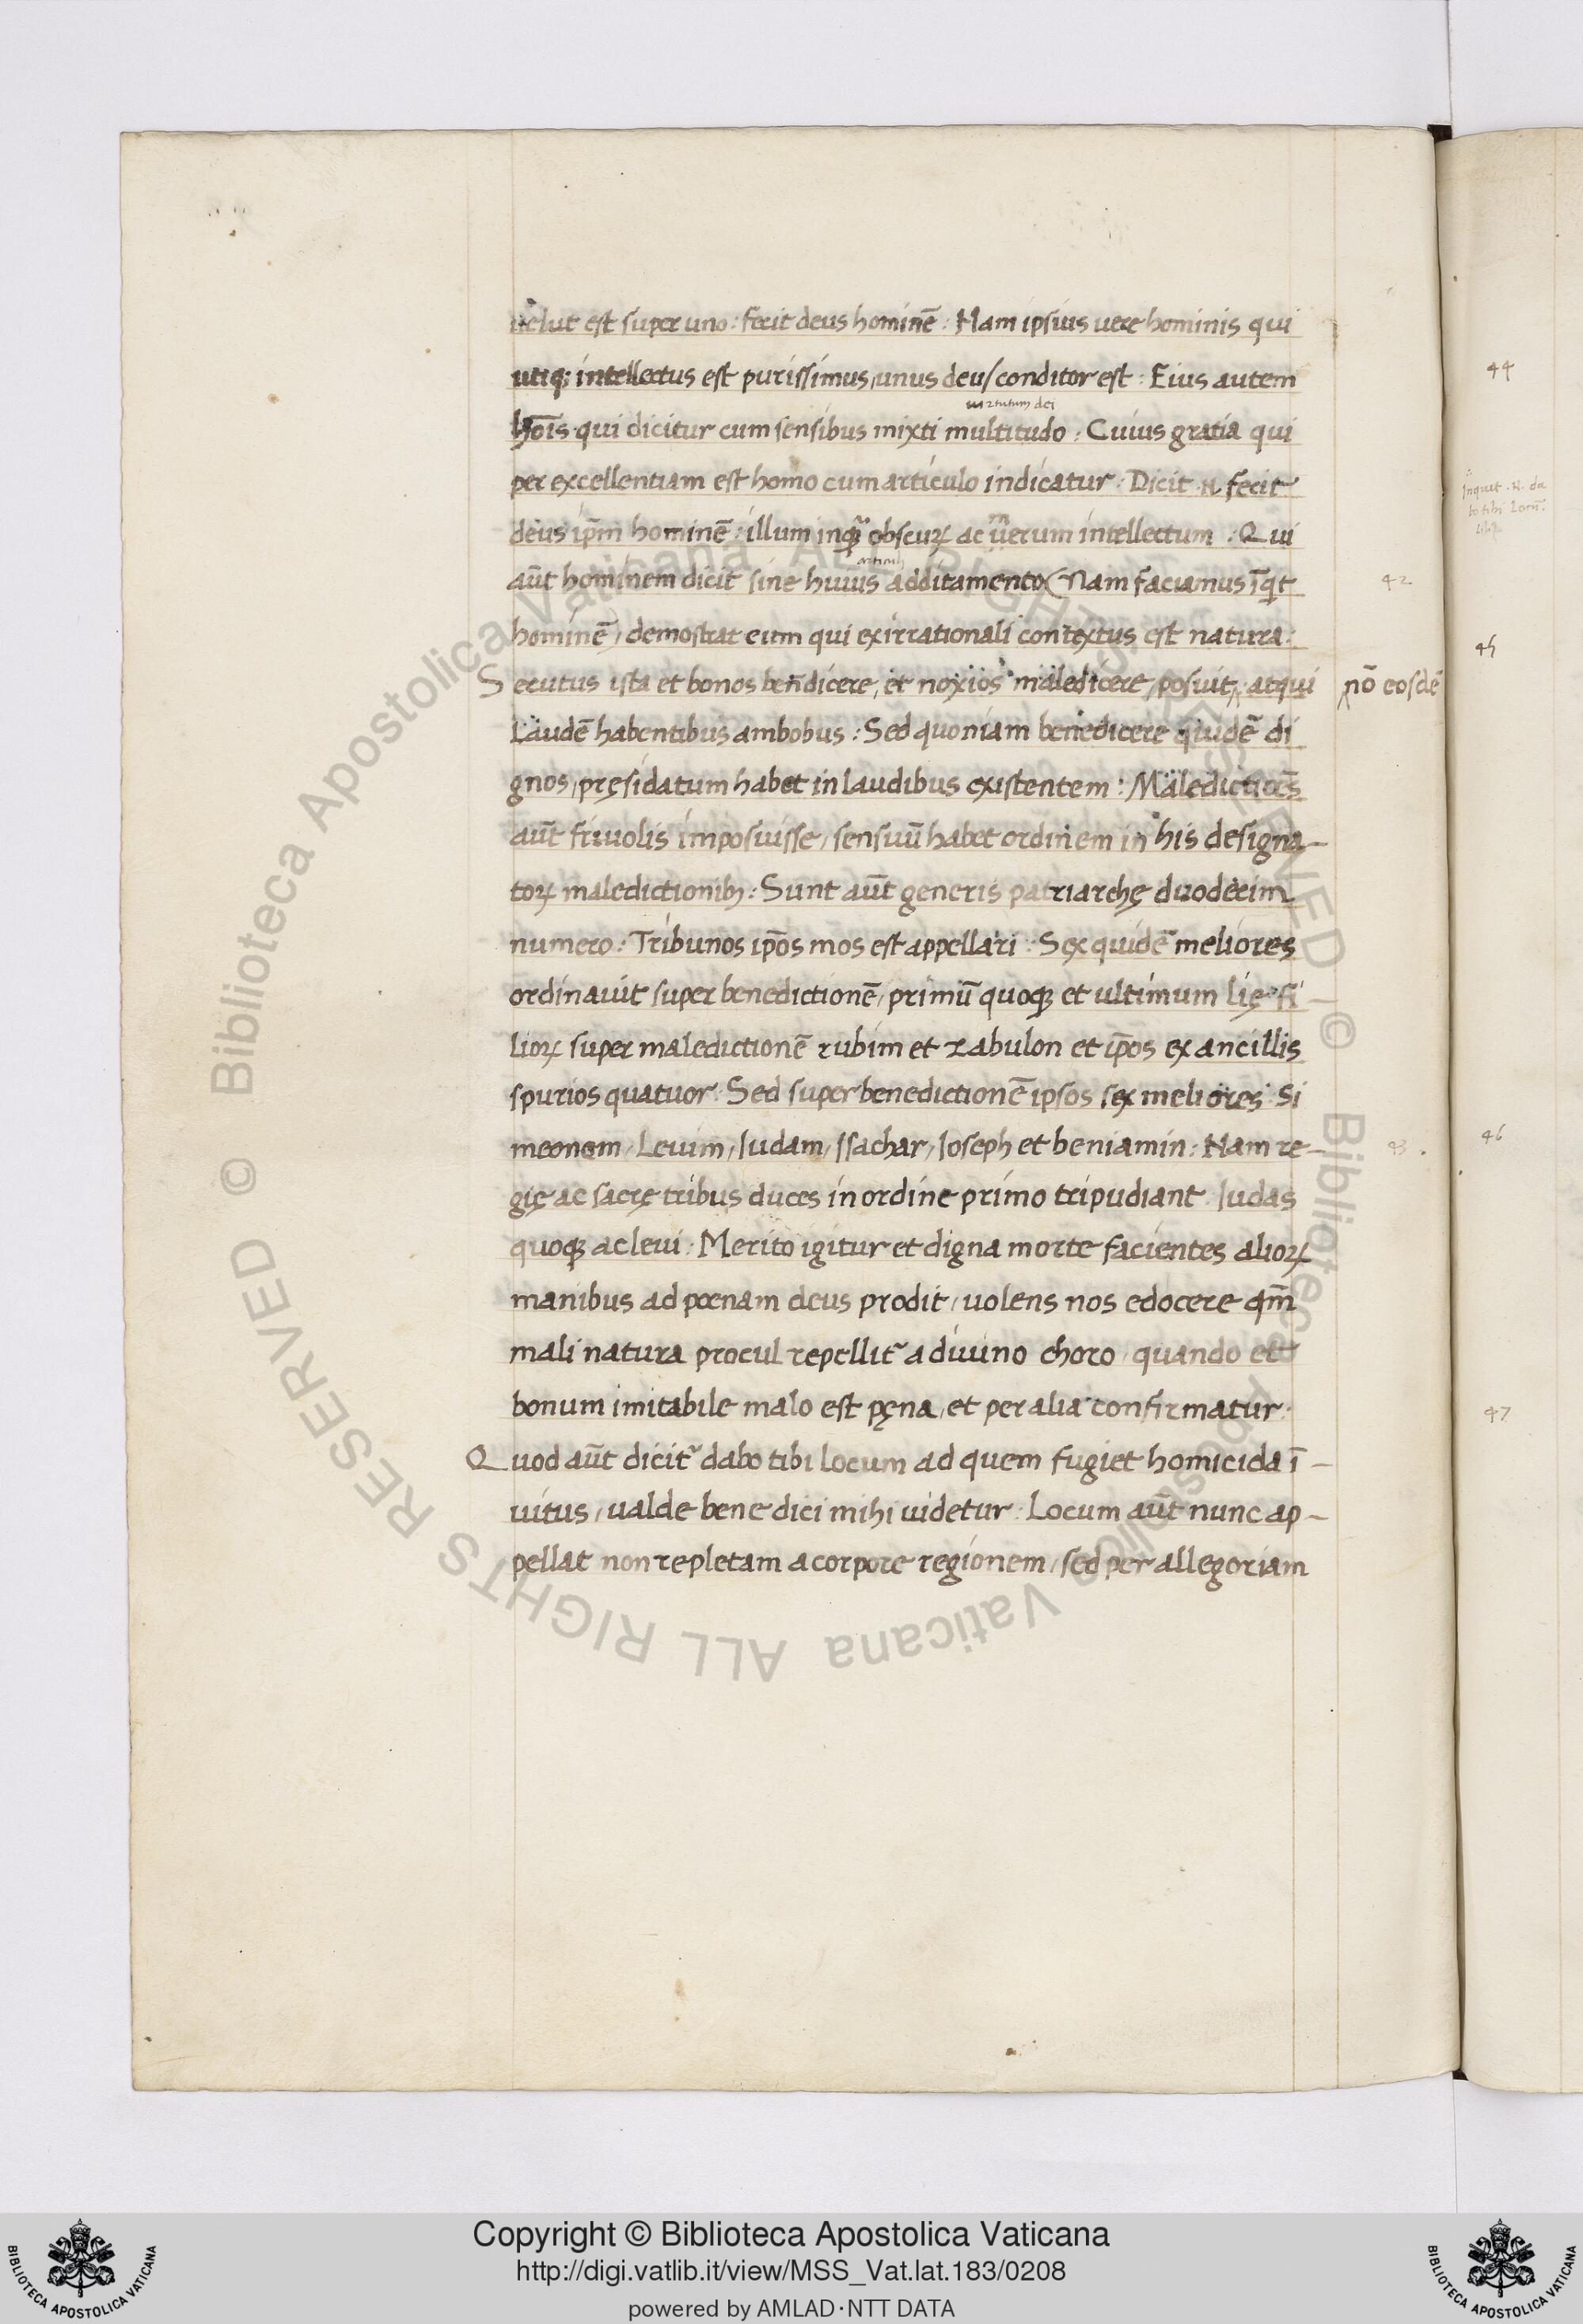 uelut est super uno: fecit deus hominē: Nam ipsius uere hominis qui
utiq; intellectus est purissimus, unus deus conditor est: Eius autem
uirtutum dei
hoīs qui dicitur cum sensibus mixti multitudo: Cuius gratia qui
per excellentiam est homo cum articulo indicatur: Dicit .N. fecit
deus ip̄m hominē: illum inquā obscurꝝ ac uerum intellectum: Qui
articuli
aūt hominem dicit sine huius additamento (Nam faciamus īqt
hominē) demostrat eum qui exirrationali contextus est natura:
Secutus ista et bonos bēndicere, et noxios maledicere, posuit, atqui
nō eosdē
Laudē habentibus ambobus: Sed quoniam benedicere quidē di
gnos, pręsidatum habet in laudibus existentem: Maledictiōēs
aūt friuolis imposuisse, sensuū habet ordinem in his designa-
torꝝ maledictionibꝫ: Sunt aūt generis patriarchę duodecim
numero: Tribunos ip̄os mos est appellari: Sex quidē meliores
ordinauit super benedictionē, primū quoqꝫ et ultimum lię fi-
liorꝝ super maledictionē rubim et zabulon et ip̄os ex ancillis
spurios quatuor: Sed super benedictionē ipsos sex meliores: Si
meonem, Leuim, Iudam, Issachar, Ioseph et beniamin: Nam re-
gię ac sacrę tribus duces in ordine primo tripudiant: Iudas
quoqꝫ ac leui: Merito igitur et digna morte facientes aliorꝝ
manibus ad poenam deus prodit, uolens nos edocere qm̄
mali natura procul repellit᷑ a diuino choro, quando et
bonum imitabile malo est pęna, et per alia confirmatur:
Quod aūt dicit᷑ dabo tibi locum ad quem fugiet homicida ī-
uitus, ualde bene dici mihi uidetur: Locum aūt nunc ap-
pellat non repletam a corpore regionem, sed per allegoriam
42
43
44
Inquit .N. da
bo tibi Locū:
45
46
47
© Biblioteca Apostolica Vaticana ALL RIGHTS RESERVED © Biblioteca Apostolica Vaticana ALL RIGHTS RESERVED
Copyright © Biblioteca Apostolica Vaticana
http://digi.vatlib.it/view/MSS_Vat.lat.183/0208
powered by AMLAD·NTT DATA
BIBLIOTECA APOSTOLICA VATICANA
BIBLIOTECA APOSTOLICA VATICANA